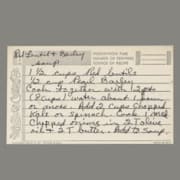 Red Lentil & Barley
Soup
1 1/2 cups Red lentils
1/2 cup Pearl Barley
Cook together with 2 qts
(8 cups) water about 1 hour
or more. Add 2 cups chopped
Kale or Spinach. Cook 1 med
chopped onion in 2 T olive
oil & 2 T butter. Add to Soup.